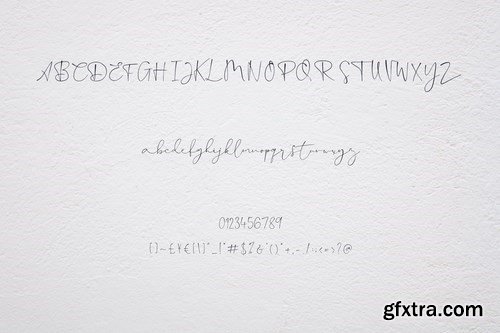 ABCDEFGHIJKLMNOPQRSTUVWXYZ
abcdefghijklmnopqrstuvwxyz
0123456789
gfxtra.com